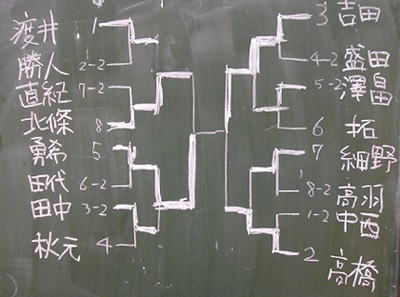 渡井 1
勝人 2-2
直紀 7-2
北條 8
勇希 5
田代 6-2
田中 3-2
秋元 4
3 吉田
4-2 盛田
5-2 澤畠
6 拓
7 細野
8-2 高羽
1-2 中西
2 高橋